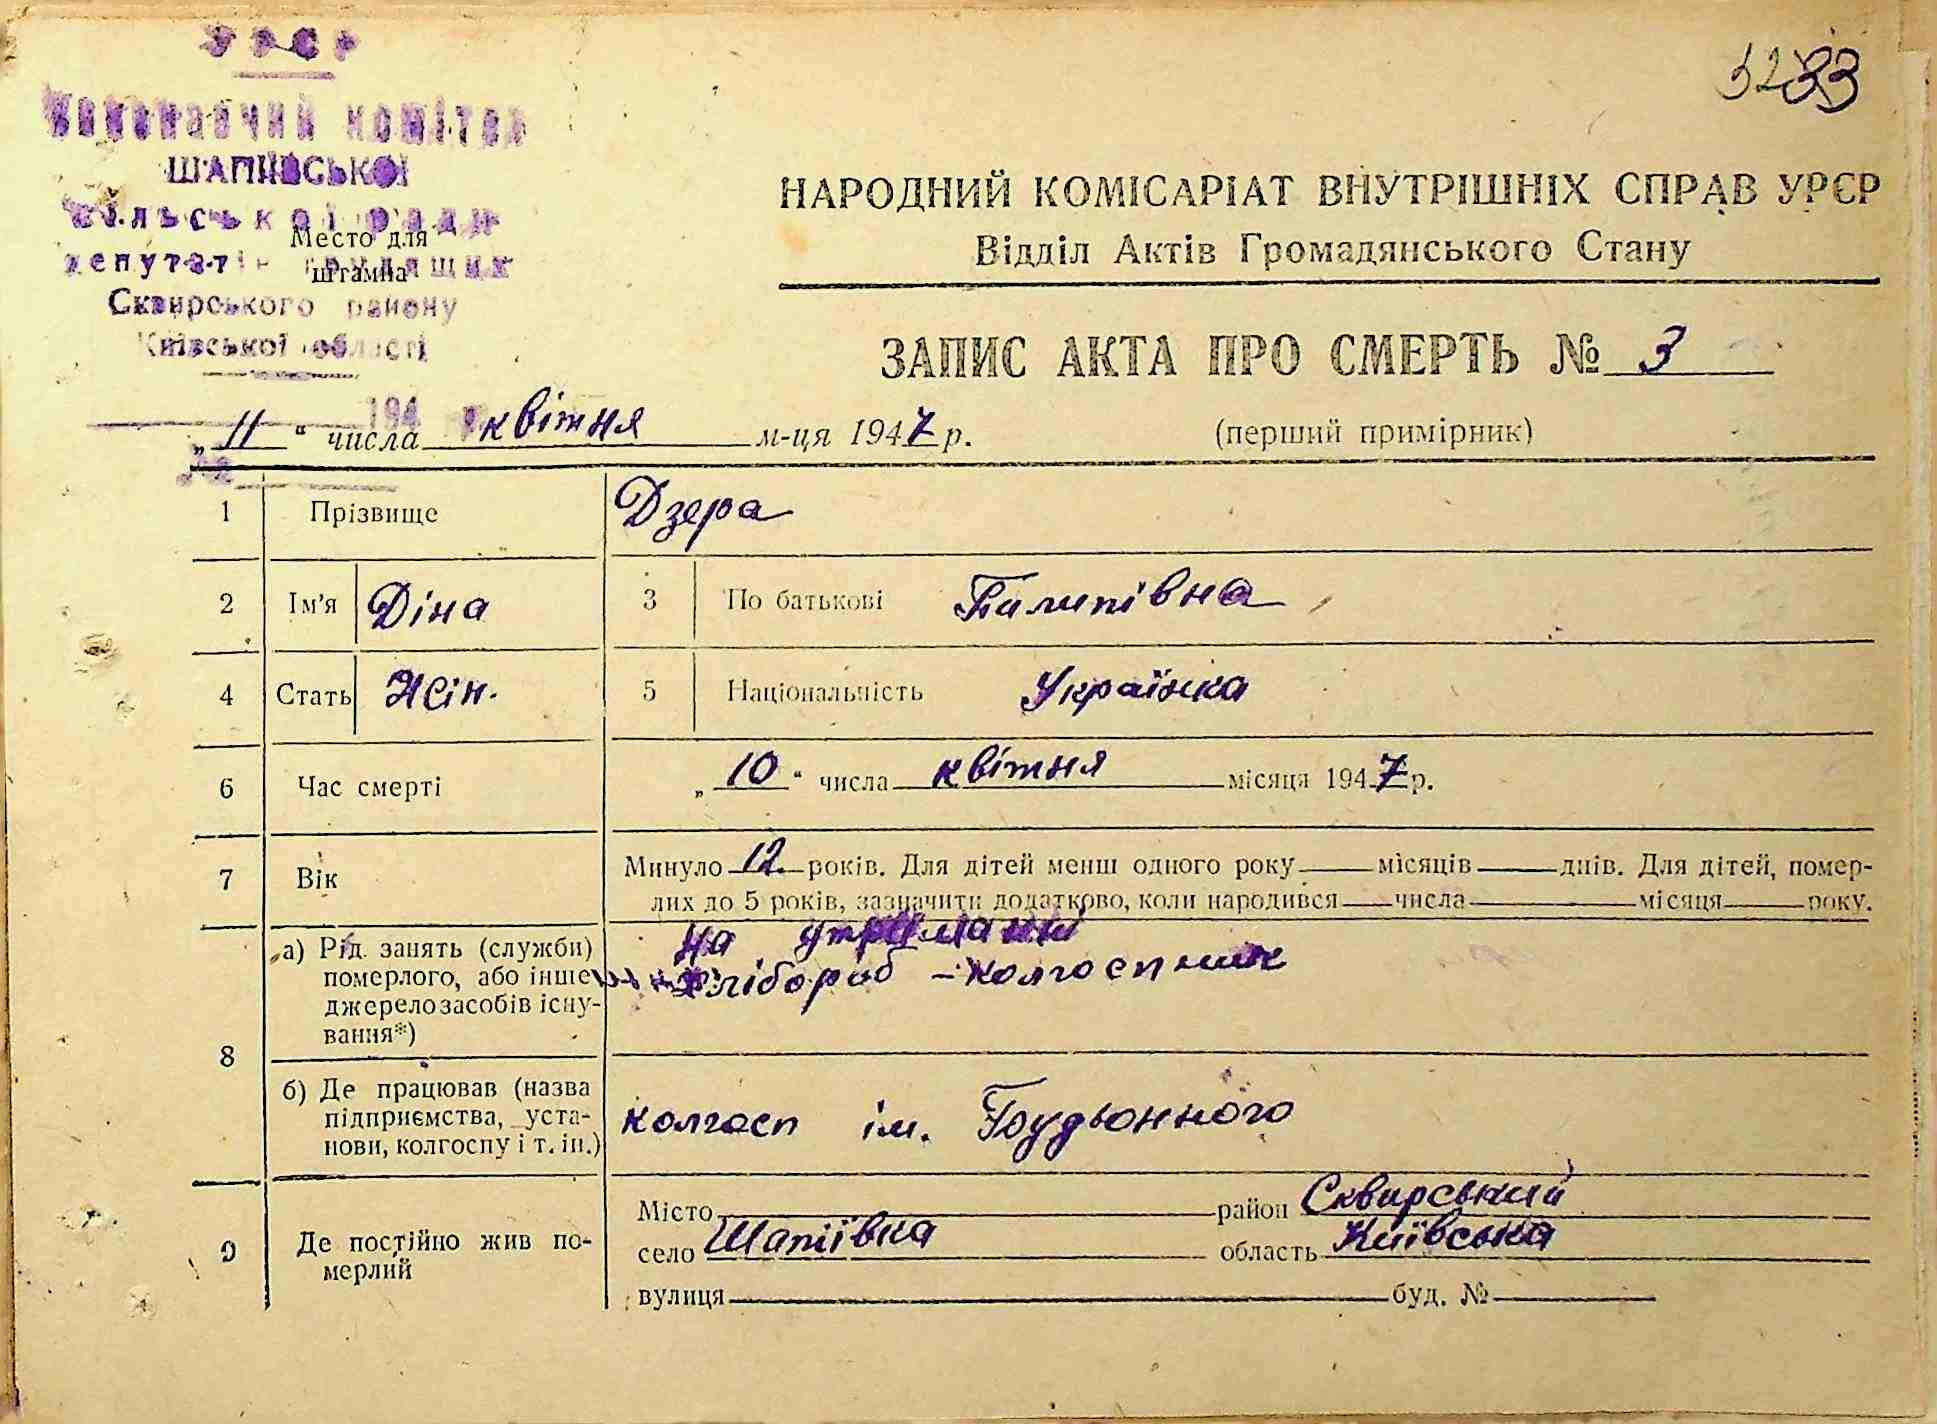 УРСР
Виконавчий комітет
ШАПІЇВСЬКОЇ
сільської ради
депутатів трудящих
Сквирського району
Київської області
194
Место для
штампа
3233
НАРОДНИЙ КОМІСАРІАТ ВНУТРІШНІХ СПРАВ УРСР
Відділ Актів Громадянського Стану
ЗАПИС АКТА ПРО СМЕРТЬ № 3
„11“ числа квітня м-ця 1947 р.
(перший примірник)
1 Прізвище Дзера
2 Ім'я Діна 3 По батькові Пилипівна
4 Стать Жін. 5 Національність Українка
6 Час смерті „10“ числа квітня місяця 1947 р.
7 Вік Минуло 12 років. Для дітей менш одного року місяців днів. Для дітей, помер-
лих до 5 років, зазначити додатково, коли народився числа місяця року.
8 а) Рід занять (служби)
померлого, або інше
джерело засобів існу-
вання*)
на утриманні
хлібороб - колгоспник
б) Де працював (назва
підприємства, уста-
нови, колгоспу і т. ін.)
колгосп ім. Будьонного
9 Де постійно жив по-
мерлий
Місто район Сквирський
село Шапіївка область Київська
вулиця буд. №